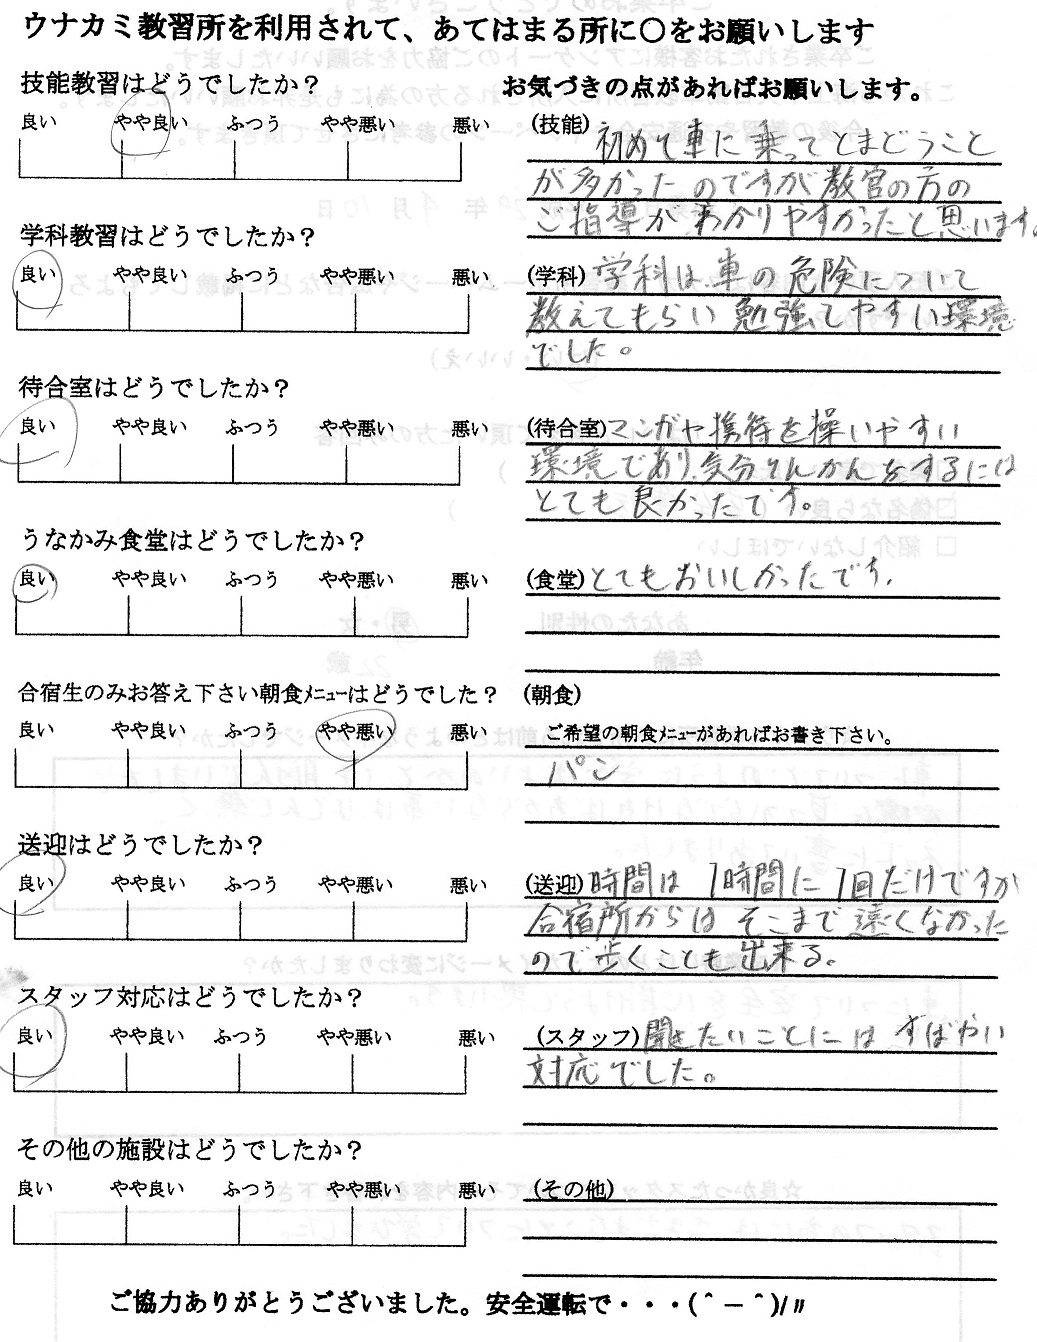 ウナカミ教習所を利用されて、あてはまる所に〇をお願いします
技能教習はどうでしたか？
お気づきの点があればお願いします。
良い やや良い ふつう やや悪い 悪い
(技能) 初めて車に乗ってとまどうこと
が多かったのですが教官の方の
ご指導がわかりやすかったと思います。
学科教習はどうでしたか？
良い やや良い ふつう やや悪い 悪い
(学科) 学科は車の危険について
教えてもらい勉強しやすい環境
でした。
待合室はどうでしたか？
良い やや良い ふつう やや悪い 悪い
(待合室) マンガや携帯を操いやすい
環境であり、気分てんかんをするには
とても良かったです。
うなかみ食堂はどうでしたか？
良い やや良い ふつう やや悪い 悪い
(食堂) とてもおいしかったです。
合宿生のみお答え下さい朝食ﾒﾆｭｰはどうでした？
良い やや良い ふつう やや悪い 悪い
(朝食)
ご希望の朝食ﾒﾆｭｰがあればお書き下さい。
パン
送迎はどうでしたか？
良い やや良い ふつう やや悪い 悪い
(送迎) 時間は1時間に1回だけですが
合宿所からはそこまで遠くなかった
ので歩くことも出来る。
スタッフ対応はどうでしたか？
良い やや良い ふつう やや悪い 悪い
(スタッフ) 聞きたいことにはすばやい
対応でした。
その他の施設はどうでしたか？
良い やや良い ふつう やや悪い 悪い
(その他)
ご協力ありがとうございました。安全運転で・・・(＾－＾)/〃